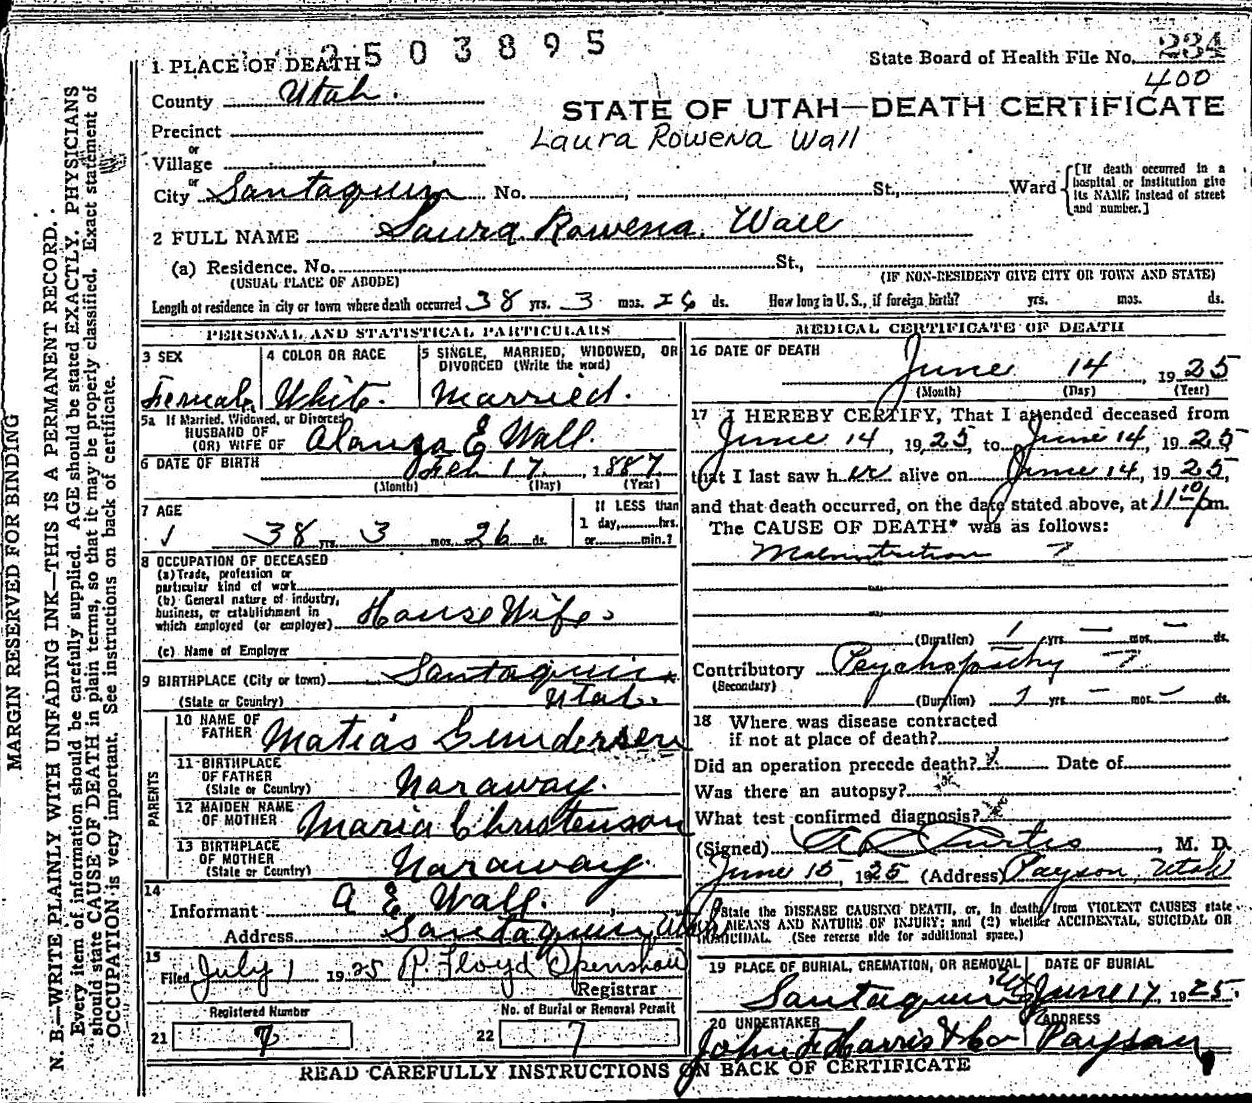 2503895
State Board of Health File No. 234
400
1 PLACE OF DEATH
County Utah.
STATE OF UTAH—DEATH CERTIFICATE
Laura Rowena Wall
Precinct
or
Village
or
City Santaquin No. , St., Ward
[If death occurred in a
hospital or institution give
its NAME instead of street
and number.]
2 FULL NAME Laura Rowena Wall
(a) Residence. No. St.,
(USUAL PLACE OF ABODE) (IF NON-RESIDENT GIVE CITY OR TOWN AND STATE)
Length of residence in city or town where death occurred 38 yrs. 3 mos. 26 ds. How long in U.S., if foreign birth? yrs. mos. ds.
PERSONAL AND STATISTICAL PARTICULARS
3 SEX
Female
4 COLOR OR RACE
White.
5 SINGLE, MARRIED, WIDOWED, OR
DIVORCED (Write the word)
Married.
5a If Married, Widowed, or Divorced
HUSBAND OF
(OR) WIFE OF Alonzo E Wall.
6 DATE OF BIRTH Feb 17 1887
(Month) (Day) (Year)
7 AGE
38 yrs. 3 mos. 26 ds.
If LESS than
1 day, hrs.
or min.?
8 OCCUPATION OF DECEASED
(a) Trade, profession or
particular kind of work
(b) General nature of industry,
business, or establishment in
which employed (or employer) House Wife.
(c) Name of Employer
9 BIRTHPLACE (City or town) Santaquin
(State or Country) Utah.
PARENTS
10 NAME OF
FATHER Matias Gundersen
11 BIRTHPLACE
OF FATHER
(State or Country) Naraway.
12 MAIDEN NAME
OF MOTHER Maria Christenson
13 BIRTHPLACE
OF MOTHER
(State or Country) Naraway.
14
Informant A E Wall.
Address Santaquin, Utah
15
Filed July 1 1925 R. Floyd Openshaw
Registrar
Registered Number
21 7
No. of Burial or Removal Permit
22 7
MEDICAL CERTIFICATE OF DEATH
16 DATE OF DEATH
June 14, 1925
(Month) (Day) (Year)
17 I HEREBY CERTIFY, That I attended deceased from
June 14, 1925, to June 14, 1925
that I last saw her alive on June 14, 1925,
and that death occurred, on the date stated above, at 11 10 pm.
The CAUSE OF DEATH* was as follows:
Malnutrition ?
(Duration) 1 yrs. — mos. — ds.
Contributory Psychopathy ?
(Secondary)
(Duration) 1 yrs. — mos. — ds.
18 Where was disease contracted
if not at place of death?
Did an operation precede death? Date of
Was there an autopsy?
What test confirmed diagnosis?
(Signed) A L Curtis, M. D.
June 15, 1925 (Address) Payson, Utah
*State the DISEASE CAUSING DEATH, or, in death from VIOLENT CAUSES state
MEANS AND NATURE OF INJURY; and (2) whether ACCIDENTAL, SUICIDAL OR
HOMICIDAL. (See reverse side for additional space.)
19 PLACE OF BURIAL, CREMATION, OR REMOVAL
Santaquin
DATE OF BURIAL
June 17, 1925.
20 UNDERTAKER
John F Harris & Co
ADDRESS
Payson,
READ CAREFULLY INSTRUCTIONS ON BACK OF CERTIFICATE
MARGIN RESERVED FOR BINDING
N. B.—WRITE PLAINLY WITH UNFADING INK—THIS IS A PERMANENT RECORD.
Every item of information should be carefully supplied. AGE should be stated EXACTLY. PHYSICIANS
should state CAUSE OF DEATH in plain terms, so that it may be properly classified. Exact statement of
OCCUPATION is very important. See instructions on back of certificate.